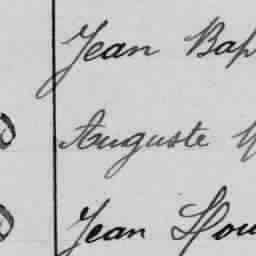 Jean Bap
Auguste
Jean Lou